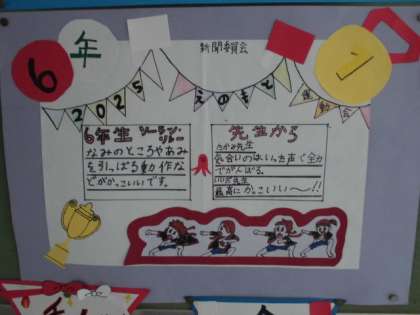 6年
新聞委員会
1
2025
えのもと
運動会
6年生 ソーラン・ソーレー
なみのところやあみ
を引っぱる動作な
どがかっこいいです。
先生から
気合いのはいった声で全力
でがんばる。
最高にかっこいい〜!!